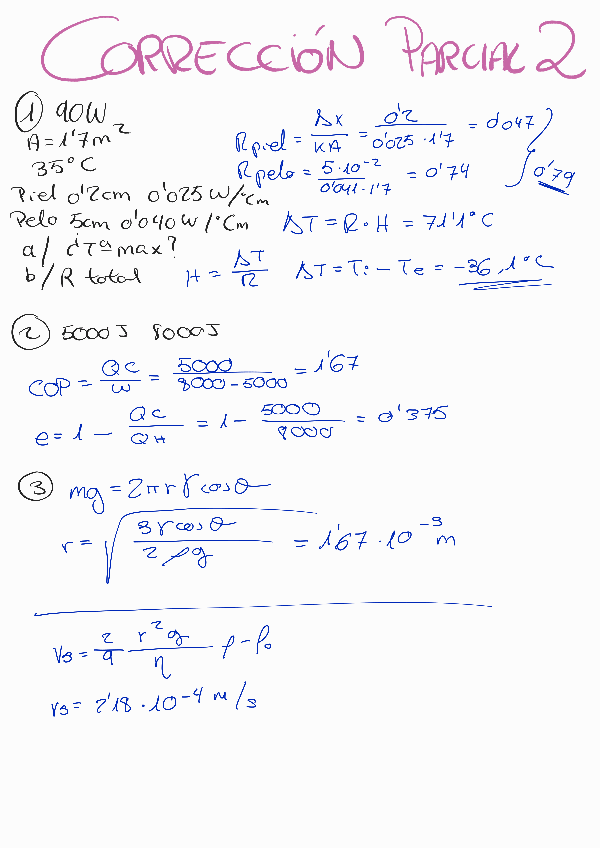 CORRECCIÓN PARCIAL 2
① 90W
A = 1'7m²
35°C
Piel 0'2cm 0'025 W/°Cm
Pelo 5cm 0'040W/°Cm
a/ ¿Tª max?
b/ R total
Rpiel = Δx/KA = 0'2/0'025·1'7 = 0'047
Rpelo = 5·10⁻²/0'041·1'7 = 0'74
0'79
ΔT = R·H = 71'1°C
H = ΔT/R ΔT = Ti - Te = -36,1°C
② 5000J 8000J
COP = QC/W = 5000/8000-5000 = 1'67
e = 1 - QC/QH = 1 - 5000/8000 = 0'375
③ mg = 2πrγcosθ
r = √(3γcosθ/2ρg) = 1'67·10⁻³ m
vs = 2/9 r²g/η ρ-ρ₀
vs = 2'18·10⁻⁴ m/s